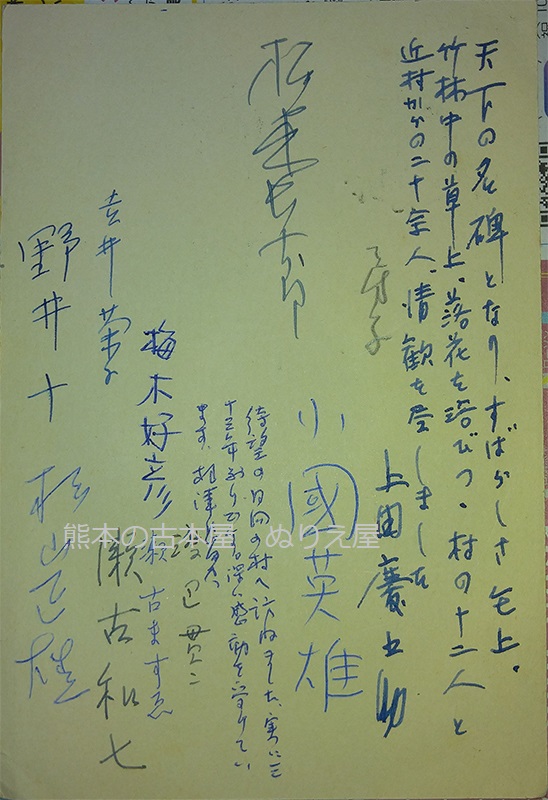 天下の名碑となり、すばらしさ無上。
竹林中の草上、落花を浴びつゝ村の十二人と
近村からの二十余人、情歓を尽しました
上田慶之助
房子
松本長十郎
小國英雄
待望の日向の村へ訪ねました、実に三
十三年ぶりでして深い感動を受けてい
ます
渡辺貫二
梅木好彦
瀬古ますゑ
瀬古和七
吉井菊子
野井十
松山正雄
熊本の古本屋 ぬりえ屋